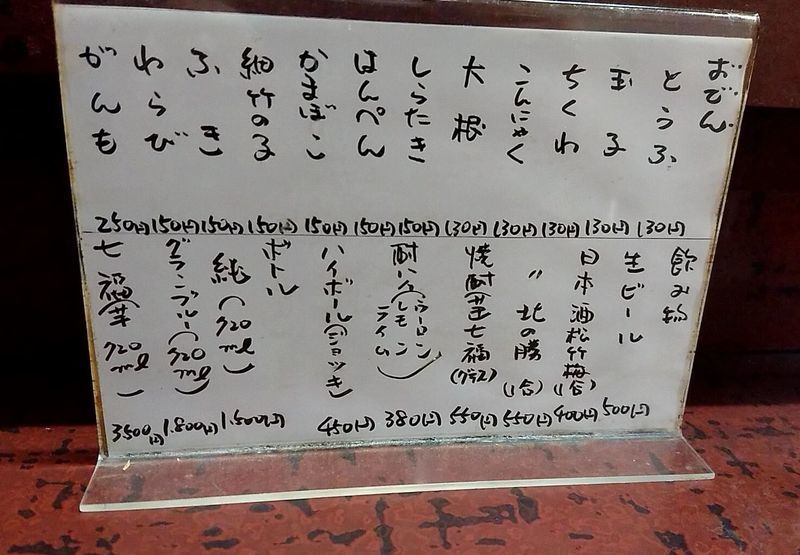 おでん
とうふ 130円
玉子 130円
ちくわ 130円
こんにゃく 130円
大根 130円
しらたき 150円
はんぺん 150円
かまぼこ 150円
細竹の子 150円
ふき 150円
わらび 150円
がんも 250円
飲み物
生ビール 500円
日本酒松竹梅(1合) 400円
〃 北の勝(1合) 550円
焼酎(芋)七福(グラス) 550円
酎ハイ(ウーロン レモン ライム) 380円
ハイボール(ジョッキ) 450円
ボトル
純(720ml) 1.500円
グランブルー(720ml) 1.800円
七福(芋 720ml) 3500円